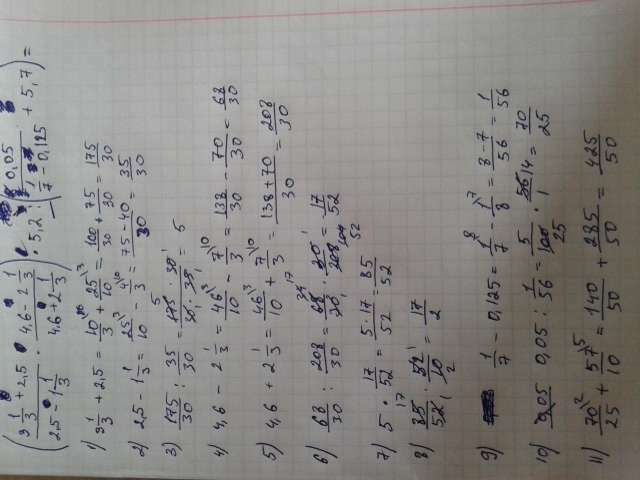 (3 1/3 + 2,5 / 2,5 - 1 1/3 · 4,6 - 2 1/3 / 4,6 + 2 1/3) · 5,2 : (0,05 / 1/7 - 0,125 + 5,7) =
1) 3 1/3 + 2,5 = 10/3 + 25/10 = 100/30 + 75/30 = 175/30
2) 2,5 - 1 1/3 = 25/10 - 4/3 = 75 - 40/30 = 35/30
3) 175/30 : 35/30 = 175/30 · 30/35 = 5
4) 4,6 - 2 1/3 = 46/10 - 7/3 = 138/30 - 70/30 = 68/30
5) 4,6 + 2 1/3 = 46/10 + 7/3 = 138 + 70/30 = 208/30
6) 68/30 : 208/30 = 68/30 · 30/208 = 17/52
7) 5 · 17/52 = 5 · 17/52 = 85/52
8) 85/52 · 52/10 = 17/2
9) 1/7 - 0,125 = 1/7 - 1/8 = 8 - 7/56 = 1/56
10) 0,05 : 1/56 = 5/100 · 56/1 = 70/25
11) 70/25 + 57/10 = 140/50 + 285/50 = 425/50